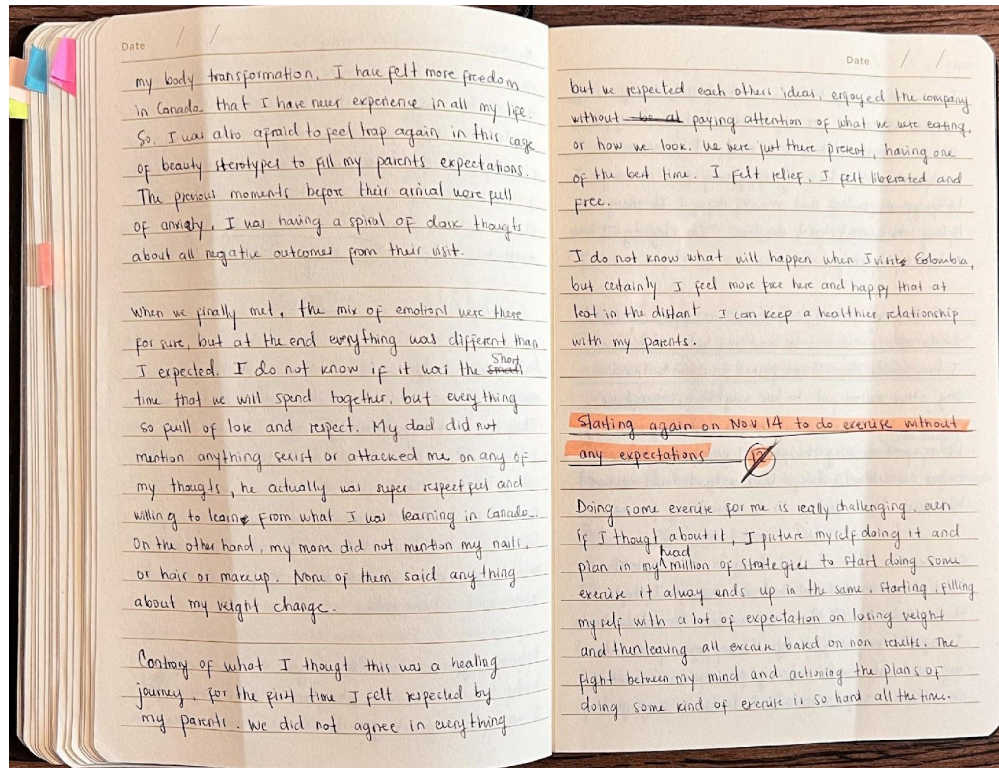 Date / /
my body transformation. I have felt more freedom
in Canada that I have never experience in all my life.
So, I was also afraid to feel trap again in this cage
of beauty sterotypes to fill my parents expectations.
The previous moments before their arrival were full
of anxiety. I was having a spiral of dark thougts
about all negative outcomes from their visit.
When we finally met, the mix of emotions were there
for sure, but at the end everything was different than
I expected. I do not know if it was the small Short
time that we will spend together, but everything
so full of love and respect. My dad did not
mention anything sexist or attacked me on any of
my thougts, he actually was super respectful and
willing to learn from what I was learning in Canada.
On the other hand, my mom did not mention my nails,
or hair or makeup. None of them said anything
about my weight change.
Contrary of what I thougt this was a healing
journey, for the first time I felt respected by
my parents. We did not agree in everything
Date / /
but we respected each others ideas, enjoyed the company
without be at paying attention of what we were eating,
or how we look. We were just there present, having one
of the best time. I felt relief, I felt liberated and
free.
I do not know what will happen when I visit Colombia,
but certainly I feel more free here and happy that at
least in the distant I can keep a healthier relationship
with my parents.
Starting again on Nov 14 to do exercise without
any expectations 12
Doing some exercise for me is really challenging, even
if I though about it, I picture myself doing it and
plan in my head million of strategies to start doing some
exercise it alway ends up in the same. Starting, filling
my self with a lot of expectation on losing weight
and then leaving all exercise based on non results. The
fight between my mind and actioning the plans of
doing some kind of exercise is so hard all the time.